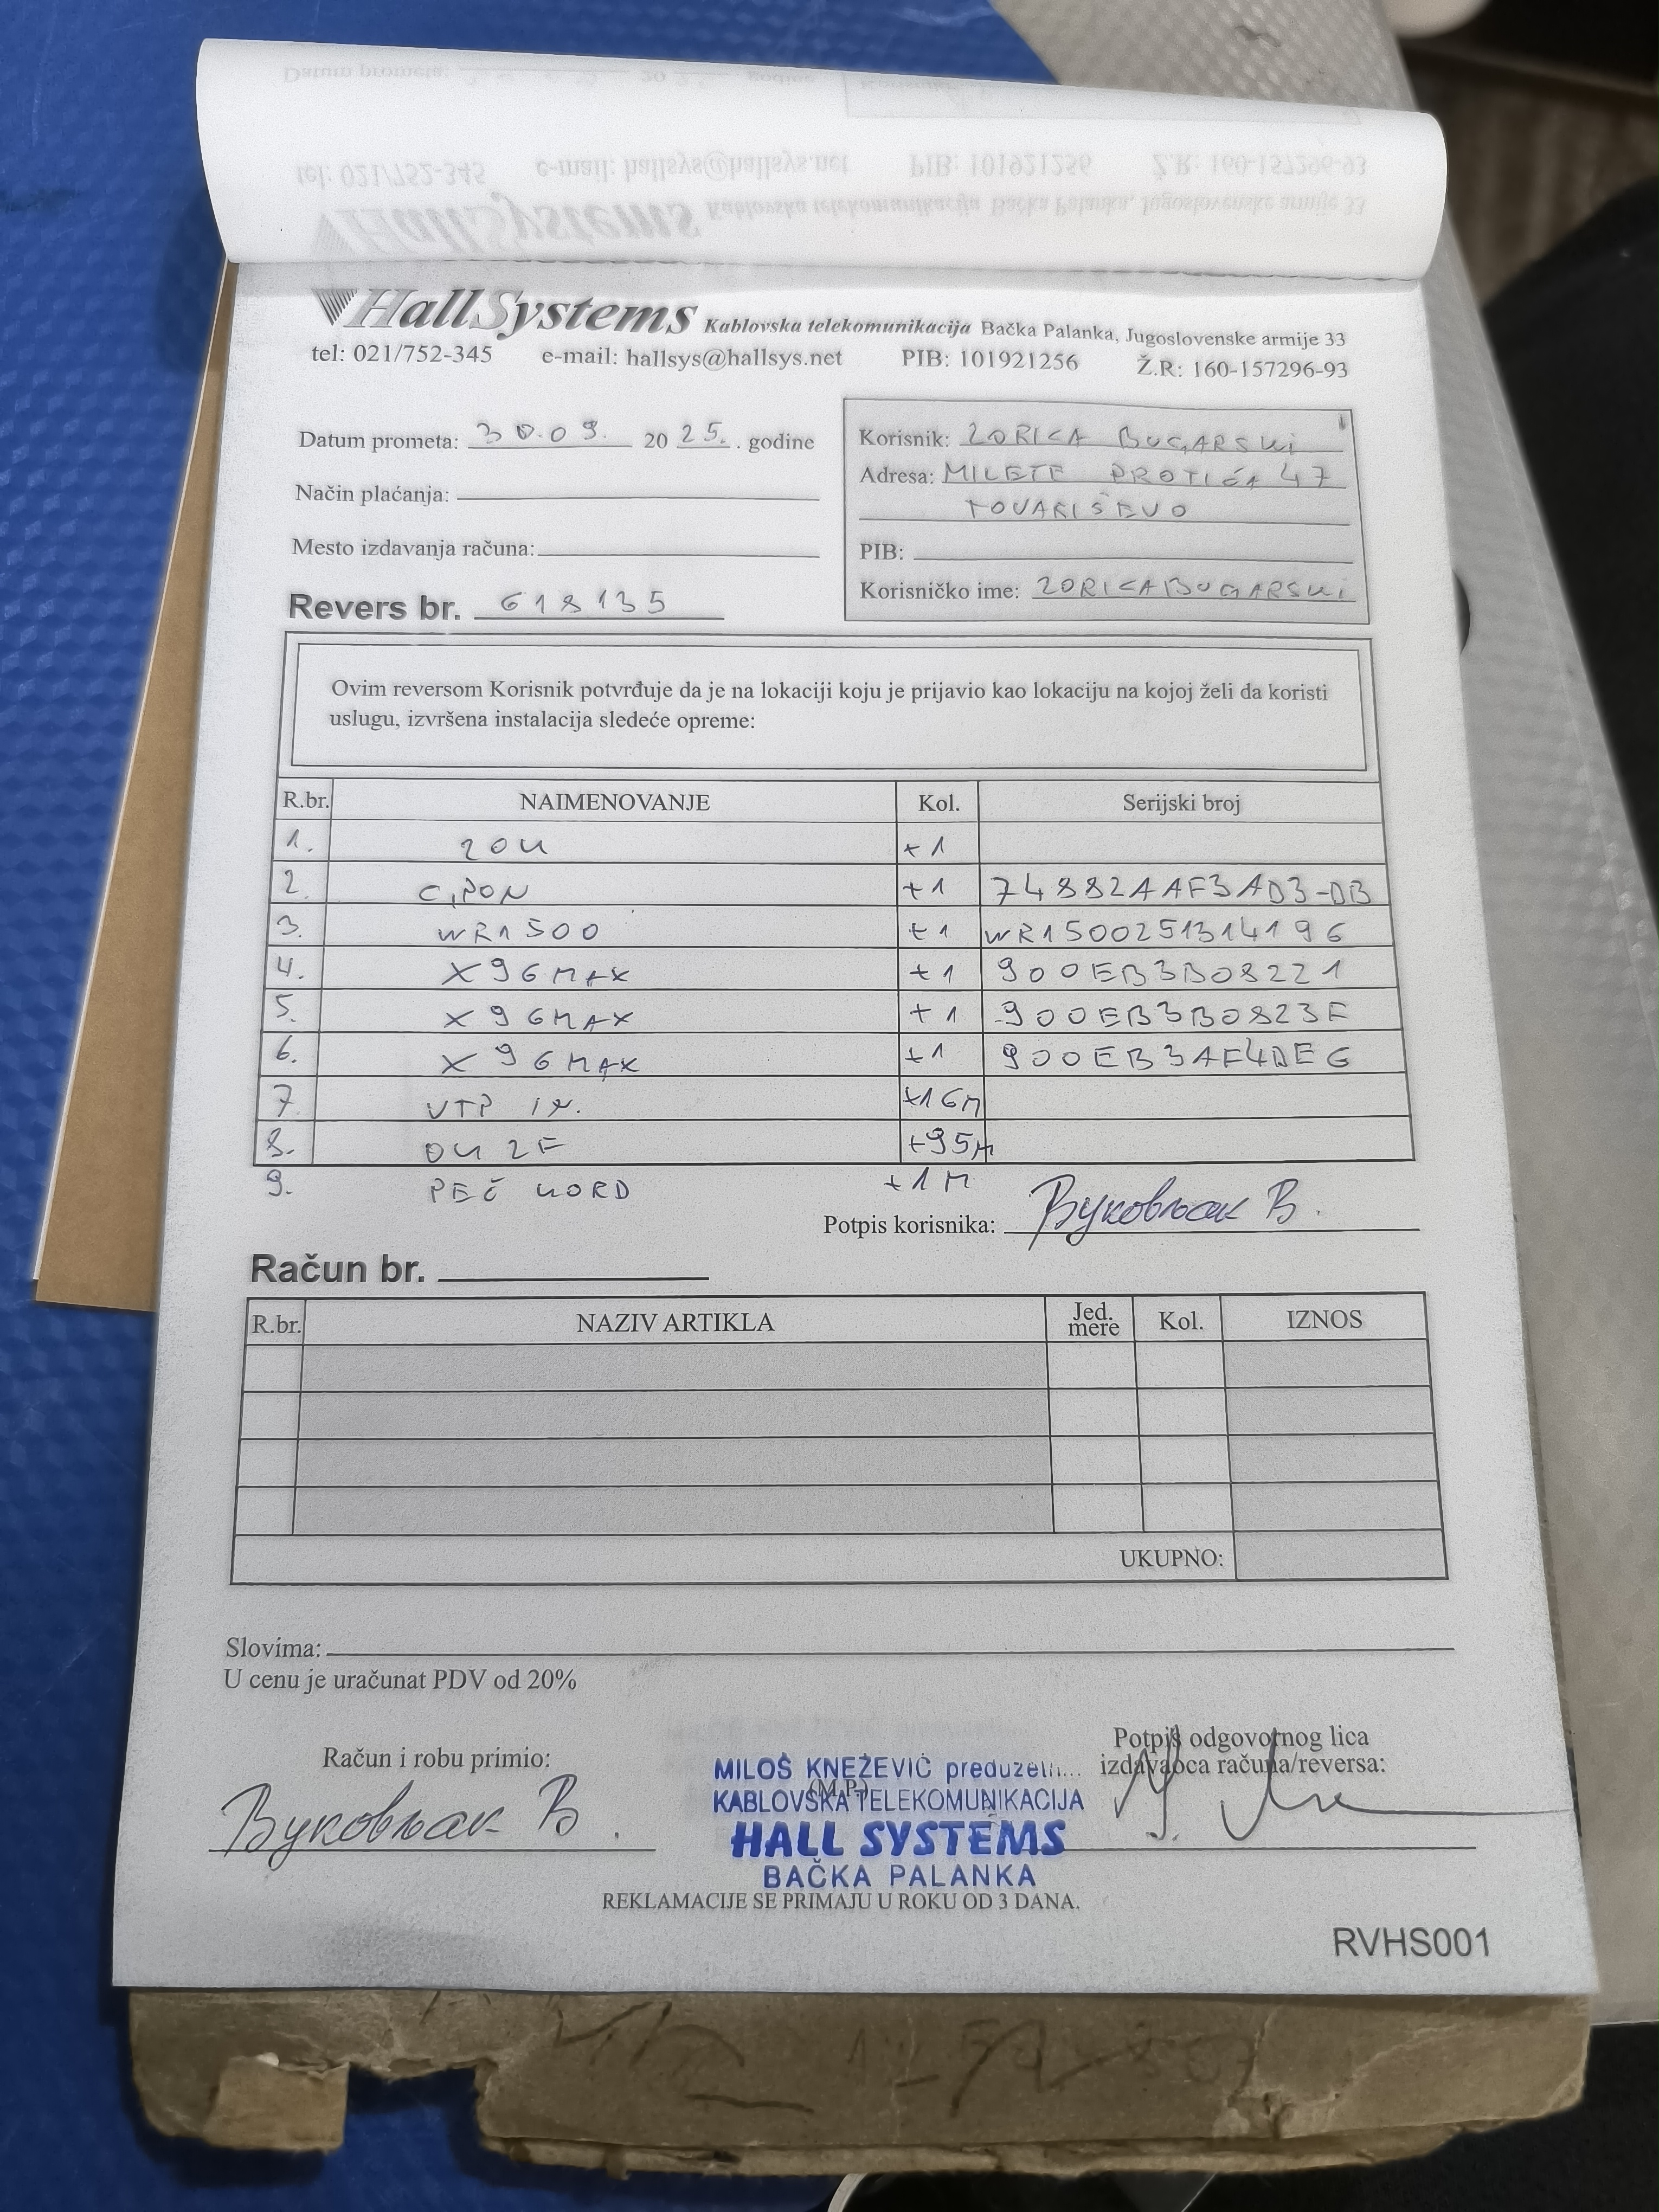 HallSystems Kablovska telekomunikacija Bačka Palanka, Jugoslovenske armije 33
tel: 021/752-345 e-mail: hallsys@hallsys.net PIB: 101921256 Ž.R: 160-157296-93
Datum prometa: 30.09. 20 25. . godine
Način plaćanja:
Mesto izdavanja računa:
Revers br. 618135
Korisnik: ZORICA BUGARSKI
Adresa: MILETE PROTIĆA 47
TOVARIŠEVO
PIB:
Korisničko ime: ZORICABUGARSKI
Ovim reversom Korisnik potvrđuje da je na lokaciji koju je prijavio kao lokaciju na kojoj želi da koristi
uslugu, izvršena instalacija sledeće opreme:
R.br. NAIMENOVANJE Kol. Serijski broj
1. ZOK +1
2. GPON +1 74882AAF3AD3-DB
3. WR1500 +1 WR1500251314196
4. X96MAX +1 900EB3B08221
5. X96MAX +1 900EB3B0823F
6. X96MAX +1 900EB3AF4DE6
7. UTP +16M
8. OK 2F +95M
9. PEČ KORD +1M
Potpis korisnika: Вуковљак В.
Račun br.
R.br. NAZIV ARTIKLA Jed. mere Kol. IZNOS
UKUPNO:
Slovima:
U cenu je uračunat PDV od 20%
Račun i robu primio:
Вуковљак В.
(M.P.)
MILOŠ KNEŽEVIĆ preduzetn...
KABLOVSKA TELEKOMUNIKACIJA
HALL SYSTEMS
BAČKA PALANKA
Potpis odgovornog lica
izdavaoca računa/reversa:
REKLAMACIJE SE PRIMAJU U ROKU OD 3 DANA.
RVHS001